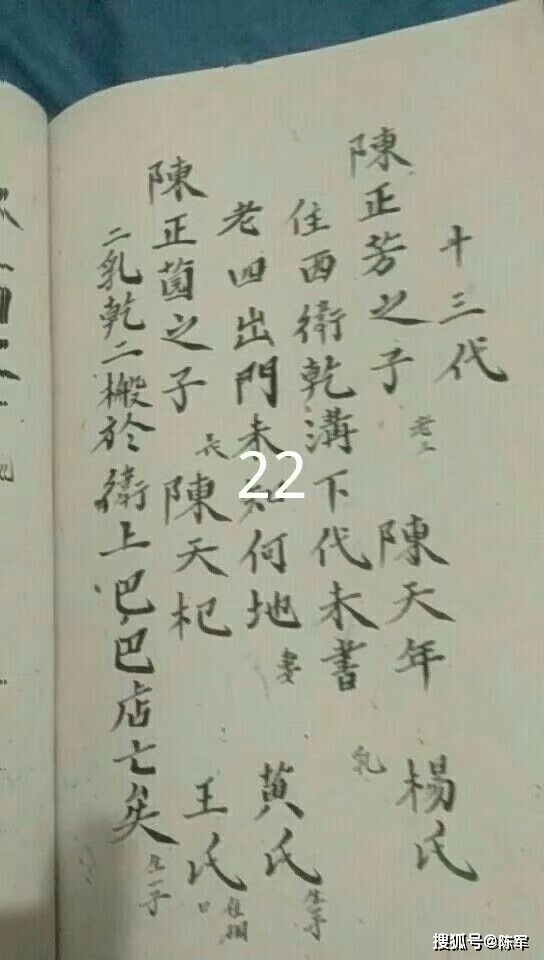 十三代
陳正芳之子 老三 陳天年 乳 楊氏
住西衛乾溝下代未書
老四出門未知何地 妻 黄氏 生子
陳正茵之子 長 陳天杞 王氏
二乳乾二搬於衛上巴巴店亡矣 生一子
22
搜狐号@陈军